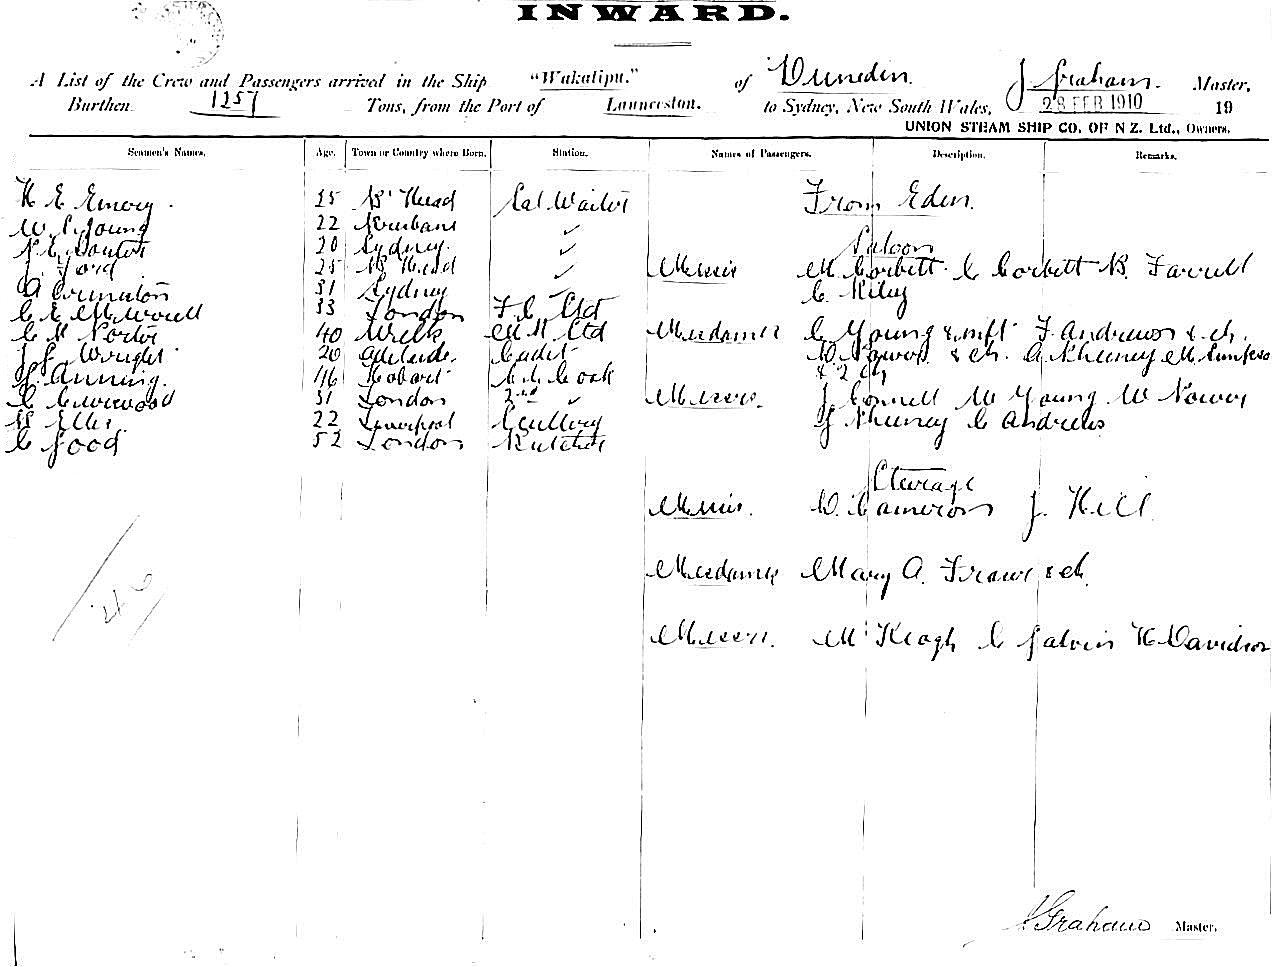 INWARD.
A List of the Crew and Passengers arrived in the Ship "Wakatipu." of Dunedin. J Graham. Master,
Burthen 1257 Tons, from the Port of Launceston. to Sydney, New South Wales, 28 FEB 1910 19
UNION STEAM SHIP CO. OF N Z. Ltd., Owners.
Seamen's Names. Age. Town or Country where Born. Station. Names of Passengers. Description. Remarks.
H E Emery. 25 B' Head Sal Waiter From Eden.
W S Young 22 Brisbane ✓
20 Sydney. ✓ Saloon
J Ford 25 B' Head ✓ Messrs M Corbett C Corbett B. Farrell
A 31 Sydney ✓ C. Riley
C E 33 London F C Std
C H Porter 40 Wells Std Mesdames C Young & inft F. Andrews & ch.
J L Wright 20 Adelaide. Cadet & ch. A
Anning. 46 Hobart Cook & 2 ch
C 31 London 2nd ✓ Messrs. J Connell W Young W
Ellis. 22 Liverpool Scullery C Andrews
C Good 52 London Butcher
Steerage
Messrs. D. Cameron J. Hill.
46
Mesdames Mary A. & ch.
Messrs. M Keogh C Galvin H Davidson
J Graham Master.